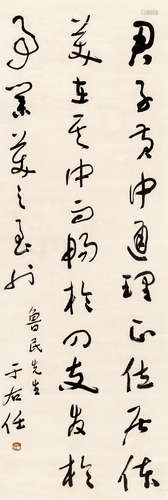 君子黄中通理正位居体
美在其中而畅於四支发於
事业美之至也
鲁民先生
于右任